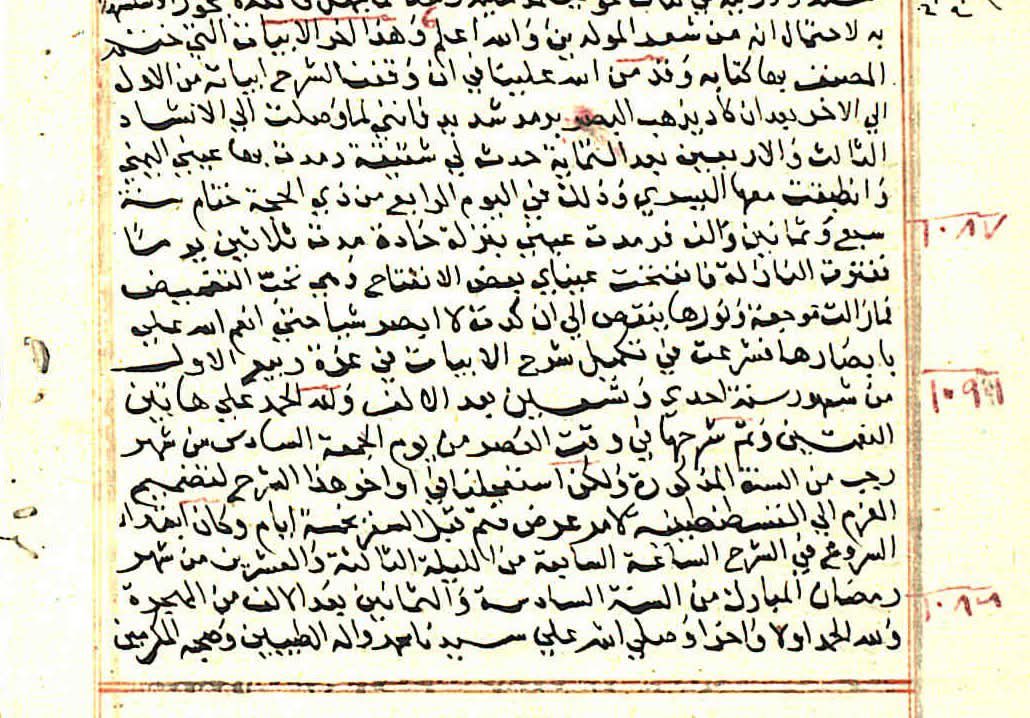 به لاحتمال انه من شعر المولدين والله اعلم وهذا اخر الابيات التي ختم
المصنف بها كتابه وقد من الله علينا في ان وقفنا لشرح ابياته من الاول
الي الاخر بعد ان كاد يذهب البصر برمد شديد فانني لما وصلت الي الانشاد
الثالث والاربعين بعد الثمانية حدث لي شقيقة رمدت بها عيني اليمني
وانطفت معها اليسري وذلك في اليوم الرابع من ذي الحجة ختام سنة
سبع وثمانين والف فرمدت عيني بنزلة حادة مدة ثلاثين يوما
النازلة فانفتحت عيناي بعض الانفتاح وهي تحت التغميض
فما زالت توجعه ونورها ينقص الي ان كدت لا ابصر شيا حتي انعم الله علي
بابصارها فشرعت في تكميل شرح الابيات في غرة ربيع الاول
من شهور سنة احدي وتسعين بعد الالف ولله الحمد علي هاتين
النعمتين وتم شرحها في وقت العصر من يوم الجمعة السادس من شهر
رجب من السنة المذكورة ولكن استعجلنا في اواخر هذا الشرح لتصميم
العزم الي القسطنطينيه لامر عرض فتم قبل السفر بخمسة ايام وكان ابتداء
الشروع في الشرح الساعة السابعة من الليلة الثالثة والعشرين من شهر
رمضان المبارك من السنة السادسة والثمانين بعد الالف من الهجرة
ولله الحمد اولا واخرا وصلي الله علي سيدنا محمد واله الطيبين وصحبه المكرمين
١٠٨٧